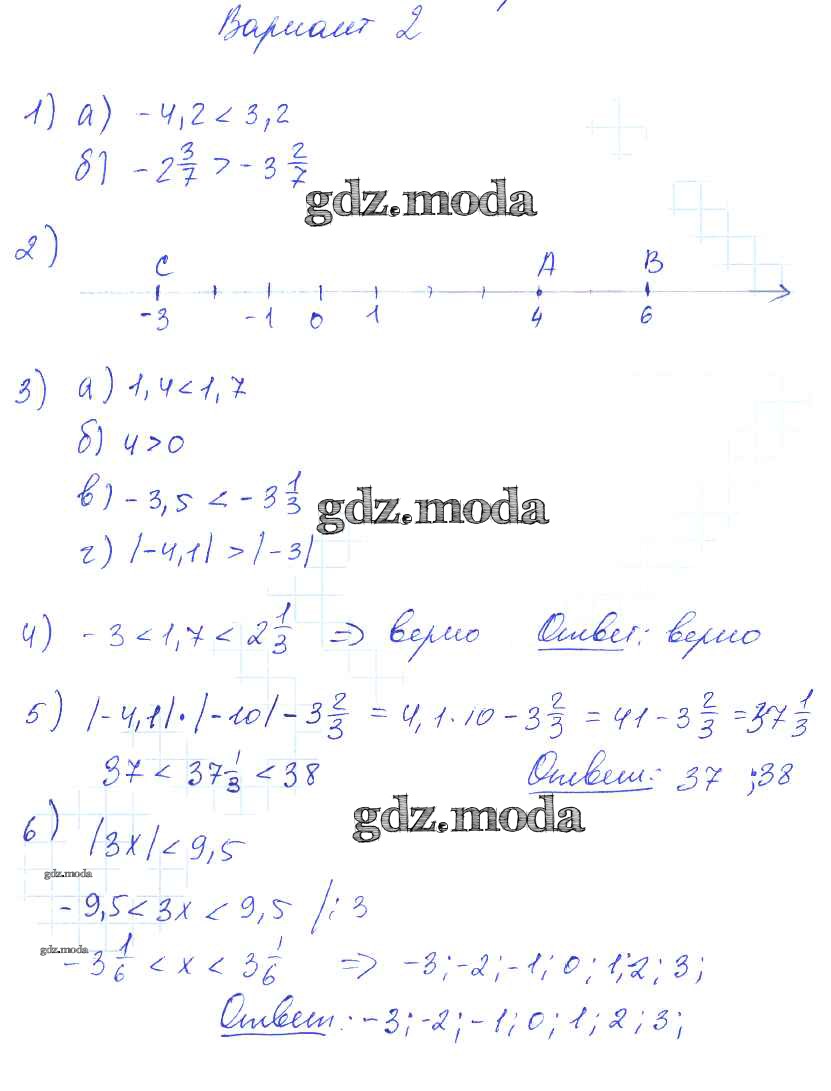 Вариант 2
1) а) -4,2 < 3,2
б) -2 3/7 > -3 2/7
gdz.moda
2)
C A B
-3 -1 0 1 4 6
3) а) 1,4 < 1,7
б) 4 > 0
в) -3,5 < -3 1/3
gdz.moda
г) |-4,1| > |-3|
4) -3 < 1,7 < 2 1/3 => верно Ответ: верно
5) |-4,1|·|-10| - 3 2/3 = 4,1·10 - 3 2/3 = 41 - 3 2/3 = 37 1/3
37 < 37 1/3 < 38 Ответ: 37 ; 38
gdz.moda
6) |3x| < 9,5
gdz.moda
-9,5 < 3x < 9,5 /: 3
gdz.moda
-3 1/6 < x < 3 1/6 => -3; -2; -1; 0; 1; 2; 3;
Ответ: -3; -2; -1; 0; 1; 2; 3;